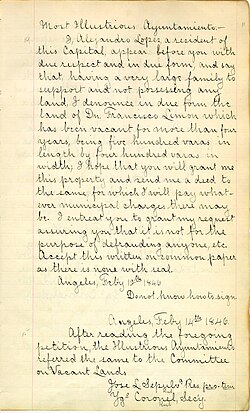 Most Illustrious Ayuntamiento.—
I, Alejandro Lopez, a resident of
this Capital, appear before you with
due respect and in due form, and say
that, having a very large family to
support and not possessing any
land, I denounce in due form the
land of Dn. Francisco Limon which
has been vacant for more than four
years, being five hundred varas in
length by four hundred varas in
width; I hope that you will grant me
this property and send me a deed to
the same, for which I will pay what-
ever municipal charges there may
be. I entreat you to grant my request
assuring you that it is not for the
purpose of defrauding anyone, etc.
Accept this written on common paper
as there is none with seal.
Angeles, Feby 12th 1846
Do not know how to sign.
Angeles, Feby 14th 1846.
After reading the foregoing
petition, the Illustrious Ayuntamiento
referred the same to the Committee
on Vacant Lands
Jose L. Sepulva Pres pro-tem
Ygo Coronel, Secy.